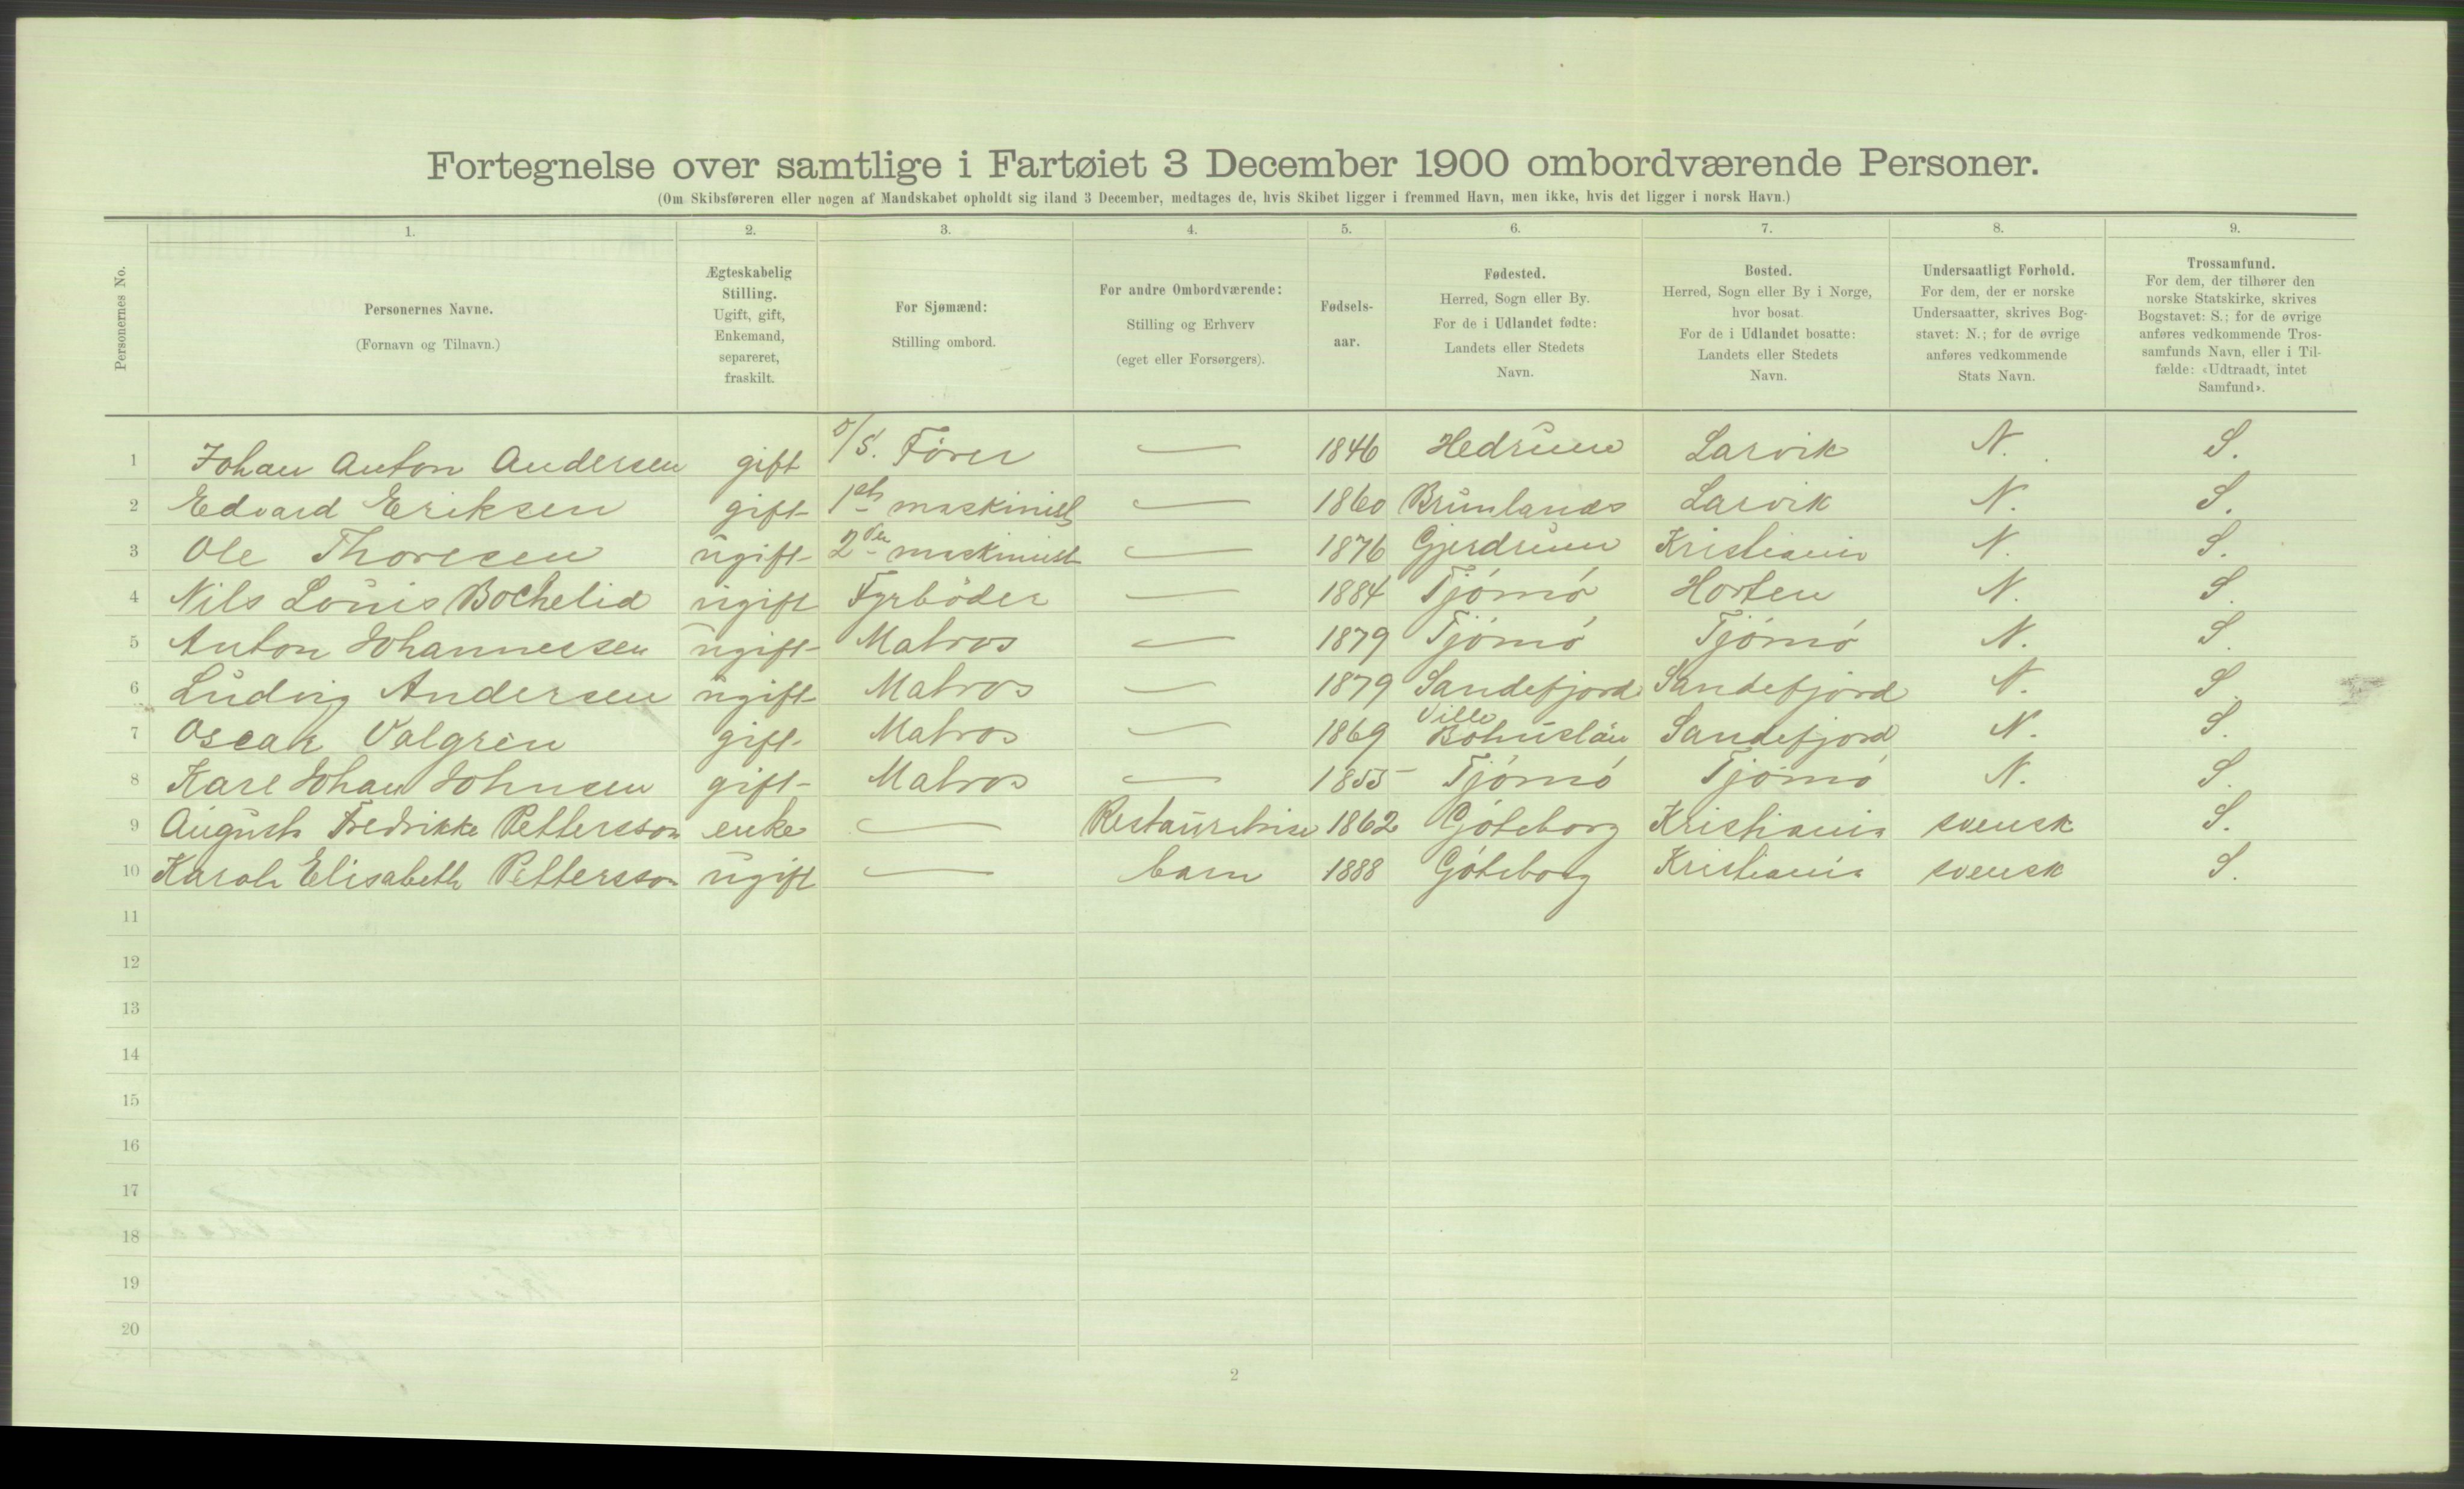 Fortegnelse over samtlige i Fartøiet 3 December 1900 ombordværende Personer.
(Om Skibsføreren eller nogen af Mandskabet opholdt sig iland 3 December, medtages de, hvis Skibet ligger i fremmed Havn, men ikke, hvis det ligger i norsk Havn.)
Personernes No.
1. 2. 3. 4. 5. 6. 7. 8. 9.
Personernes Navne.
(Fornavn og Tilnavn.)
Ægteskabelig
Stilling.
Ugift, gift,
Enkemand,
separeret,
fraskilt.
For Sjømænd:
Stilling ombord.
For andre Ombordværende:
Stilling og Erhverv
(eget eller Forsørgers).
Fødsels-
aar.
Fødested.
Herred, Sogn eller By.
For de i Udlandet fødte:
Landets eller Stedets
Navn.
Bosted.
Herred, Sogn eller By i Norge,
hvor bosat.
For de i Udlandet bosatte:
Landets eller Stedets
Navn.
Undersaatligt Forhold.
For dem, der er norske
Undersaatter, skrives Bog-
stavet: N.; for de øvrige
anføres vedkommende
Stats Navn.
Trossamfund.
For dem, der tilhører den
norske Statskirke, skrives
Bogstavet: S.; for de øvrige
anføres vedkommende Tros-
samfunds Navn, eller i Til-
fælde: «Udtraadt, intet
Samfund».
1 Johan Anton Andersen gift D/S. Fører — 1846 Hedrum Larvik N. S.
2 Edvard Eriksen gift 1ste maskinist — 1860 Brunlands Larvik N. S.
3 Ole Thoresen ugift 2den maskinist — 1876 Gjerdrum Kristiania N. S.
4 Nils Louis Bochelid ugift Fyrbøder — 1884 Tjømø Horten N. S.
5 Anton Johannessen ugift Matros — 1879 Tjømø Tjømø N. S.
6 Ludvig Andersen ugift Matros — 1879 Sandefjord Sandefjord N. S.
7 Oscar Valgren gift Matros — 1869 Ville Bohuslän Sandefjord N. S.
8 Karl Johan Johnsen gift Matros — 1855 Tjømø Tjømø N. S.
9 Augusta Fredrikke Pettersson enke — Restauratrise 1862 Göteborg Kristiania svensk S.
10 Karola Elisabeth Pettersson ugift — barn 1888 Göteborg Kristiania svensk S.
11
12
13
14
15
16
17
18
19
20
2